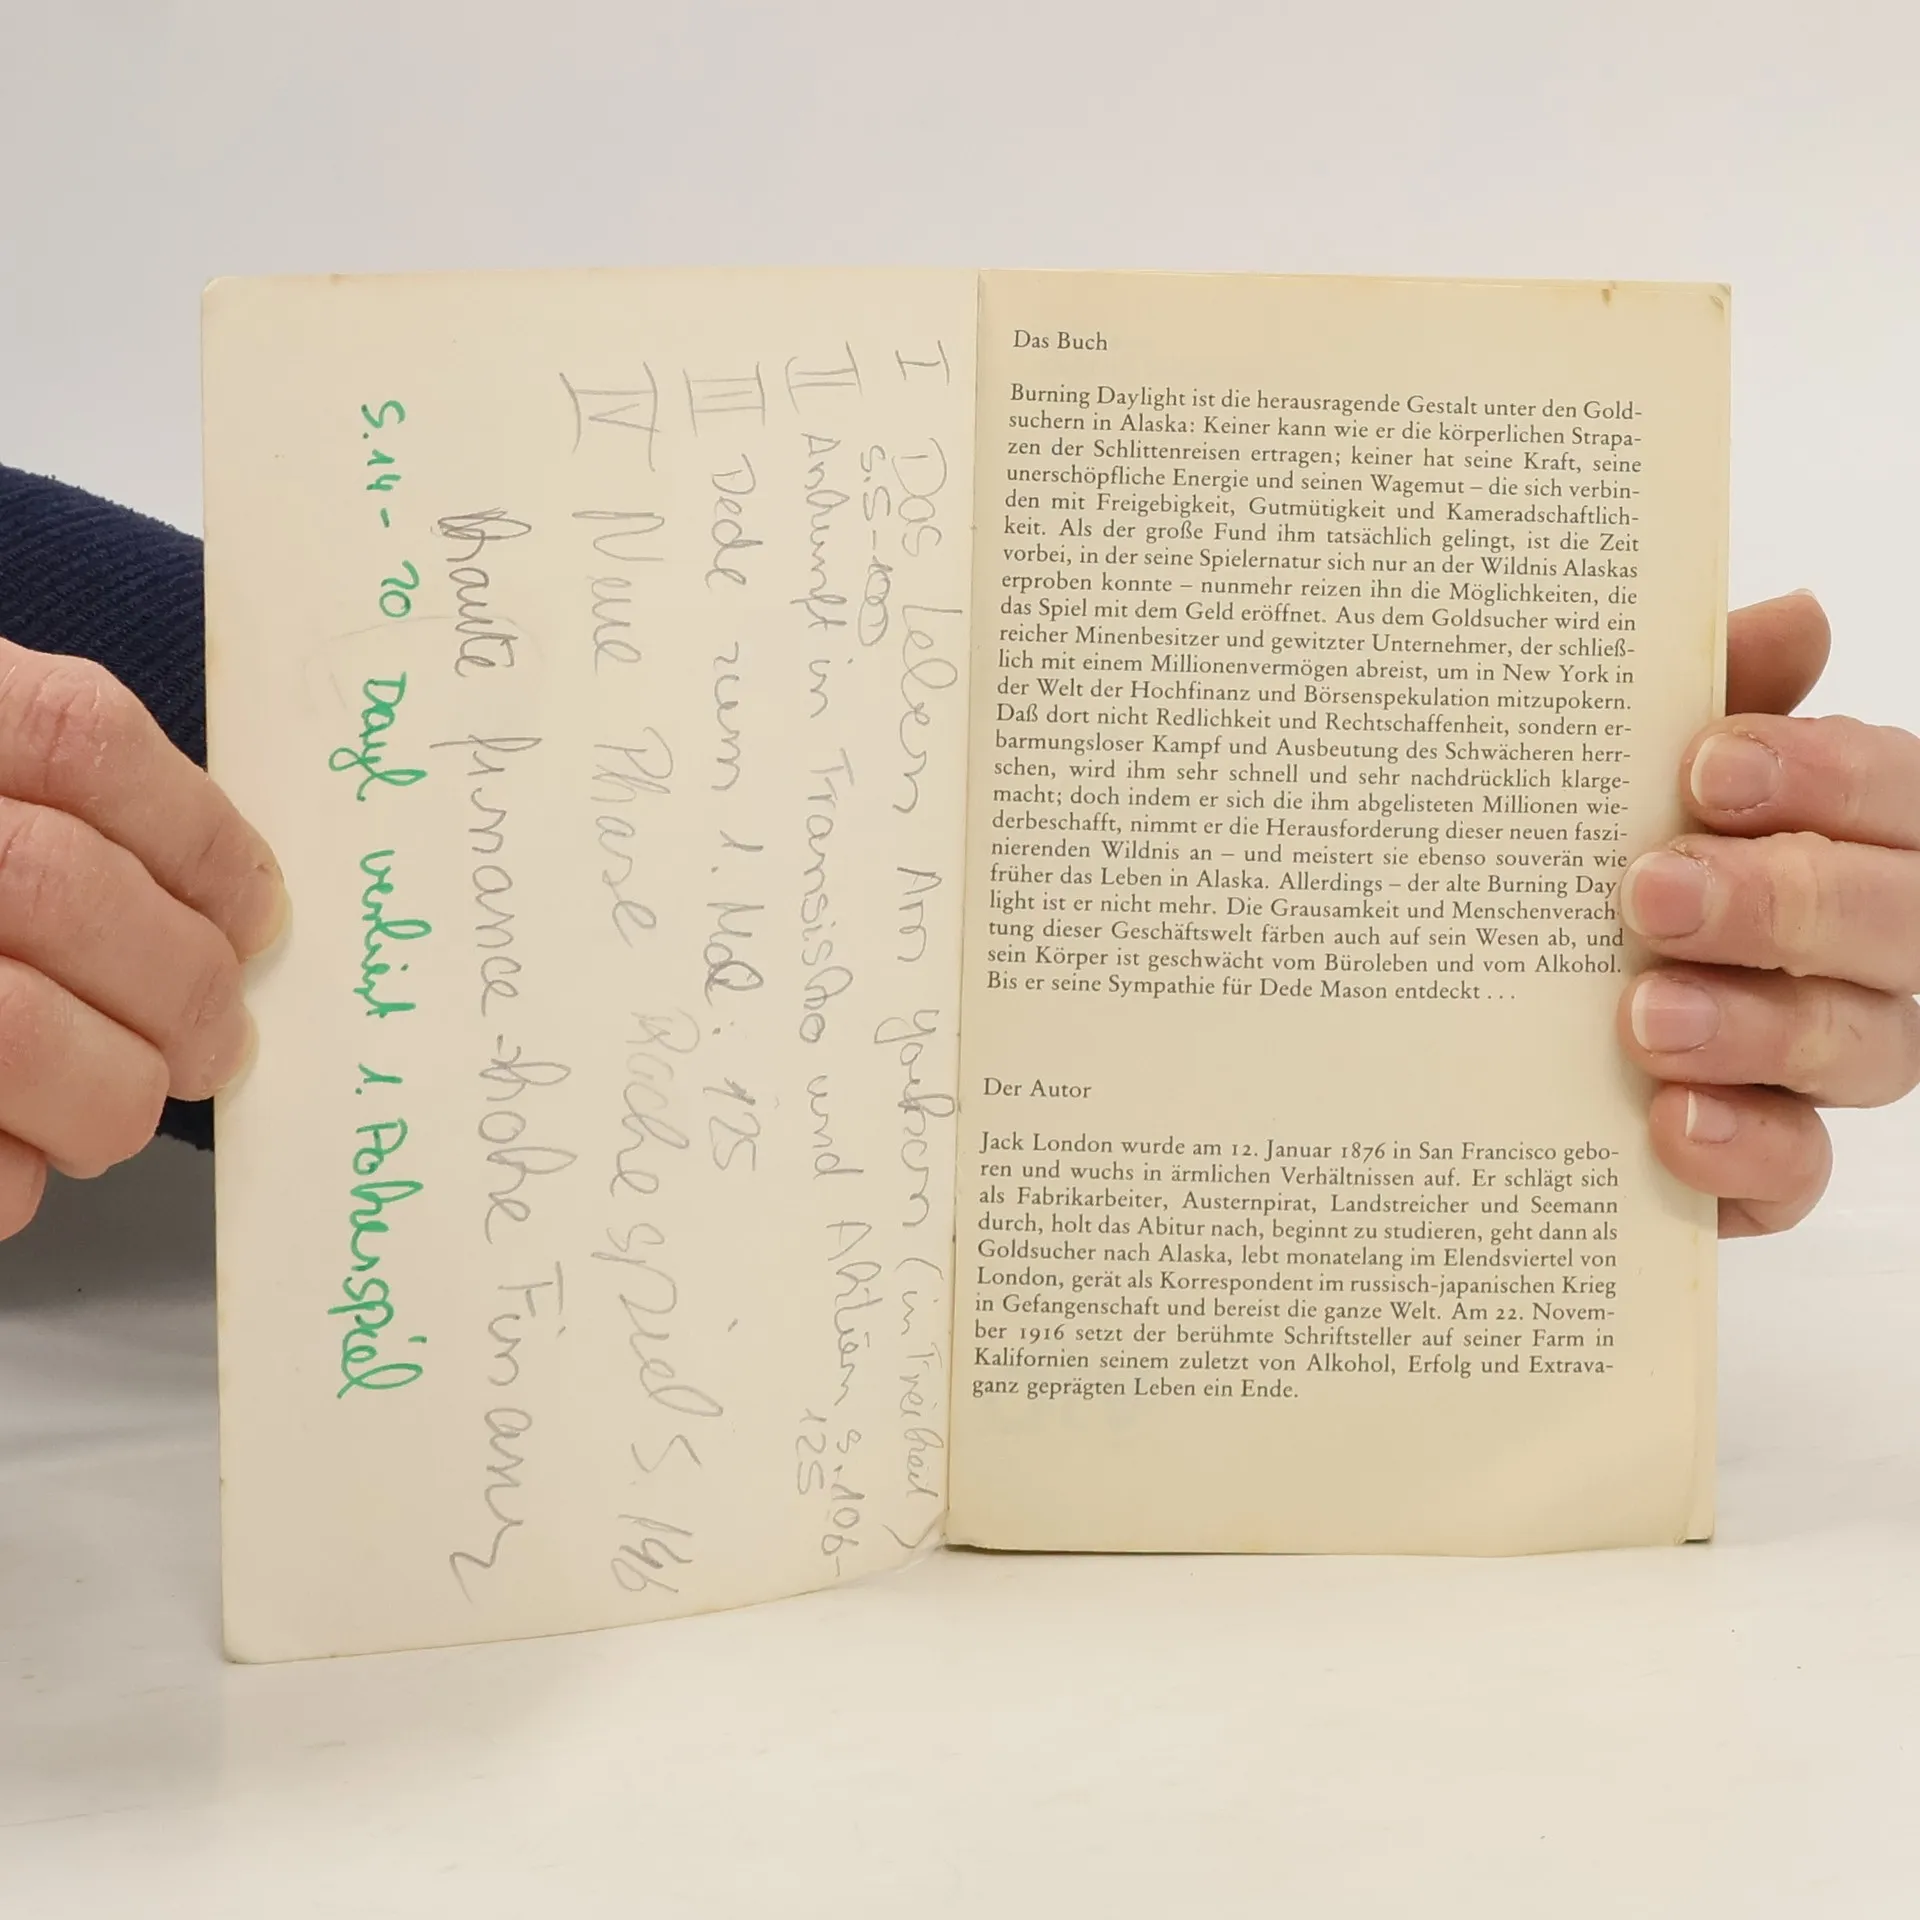 I Das Leben Am Youkon (in Freiheit)
S. 5-100
II Ankunft in Fransisko und Aktien S. 106-
125
III Dede zum 1. Mal: 125
IV Neue Phase Rachespiel S. 146
haute finance - hohe Finanz
S. 14 - 20 Dayl. verliert 1. Pokerspiel
Das Buch
Burning Daylight ist die herausragende Gestalt unter den Gold-
suchern in Alaska: Keiner kann wie er die körperlichen Strapa-
zen der Schlittenreisen ertragen; keiner hat seine Kraft, seine
unerschöpfliche Energie und seinen Wagemut – die sich verbin-
den mit Freigebigkeit, Gutmütigkeit und Kameradschaftlich-
keit. Als der große Fund ihm tatsächlich gelingt, ist die Zeit
vorbei, in der seine Spielernatur sich nur an der Wildnis Alaskas
erproben konnte – nunmehr reizen ihn die Möglichkeiten, die
das Spiel mit dem Geld eröffnet. Aus dem Goldsucher wird ein
reicher Minenbesitzer und gewitzter Unternehmer, der schließ-
lich mit einem Millionenvermögen abreist, um in New York in
der Welt der Hochfinanz und Börsenspekulation mitzupokern.
Daß dort nicht Redlichkeit und Rechtschaffenheit, sondern er-
barmungsloser Kampf und Ausbeutung des Schwächeren herr-
schen, wird ihm sehr schnell und sehr nachdrücklich klarge-
macht; doch indem er sich die ihm abgelisteten Millionen wie-
derbeschafft, nimmt er die Herausforderung dieser neuen faszi-
nierenden Wildnis an – und meistert sie ebenso souverän wie
früher das Leben in Alaska. Allerdings – der alte Burning Day
light ist er nicht mehr. Die Grausamkeit und Menschenverach
tung dieser Geschäftswelt färben auch auf sein Wesen ab, und
sein Körper ist geschwächt vom Büroleben und vom Alkohol.
Bis er seine Sympathie für Dede Mason entdeckt . . .
Der Autor
Jack London wurde am 12. Januar 1876 in San Francisco gebo-
ren und wuchs in ärmlichen Verhältnissen auf. Er schlägt sich
als Fabrikarbeiter, Austernpirat, Landstreicher und Seemann
durch, holt das Abitur nach, beginnt zu studieren, geht dann als
Goldsucher nach Alaska, lebt monatelang im Elendsviertel von
London, gerät als Korrespondent im russisch-japanischen Krieg
in Gefangenschaft und bereist die ganze Welt. Am 22. Novem-
ber 1916 setzt der berühmte Schriftsteller auf seiner Farm in
Kalifornien seinem zuletzt von Alkohol, Erfolg und Extrava-
ganz geprägten Leben ein Ende.